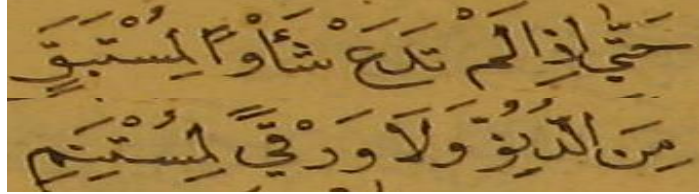 حَتَّى إِذَا لَمْ تَدَعْ شَأْوًا لِمُسْتَبِقٍ
مِنَ الدُّنُوِّ وَلَا مَرْقًى لِمُسْتَنِمِ